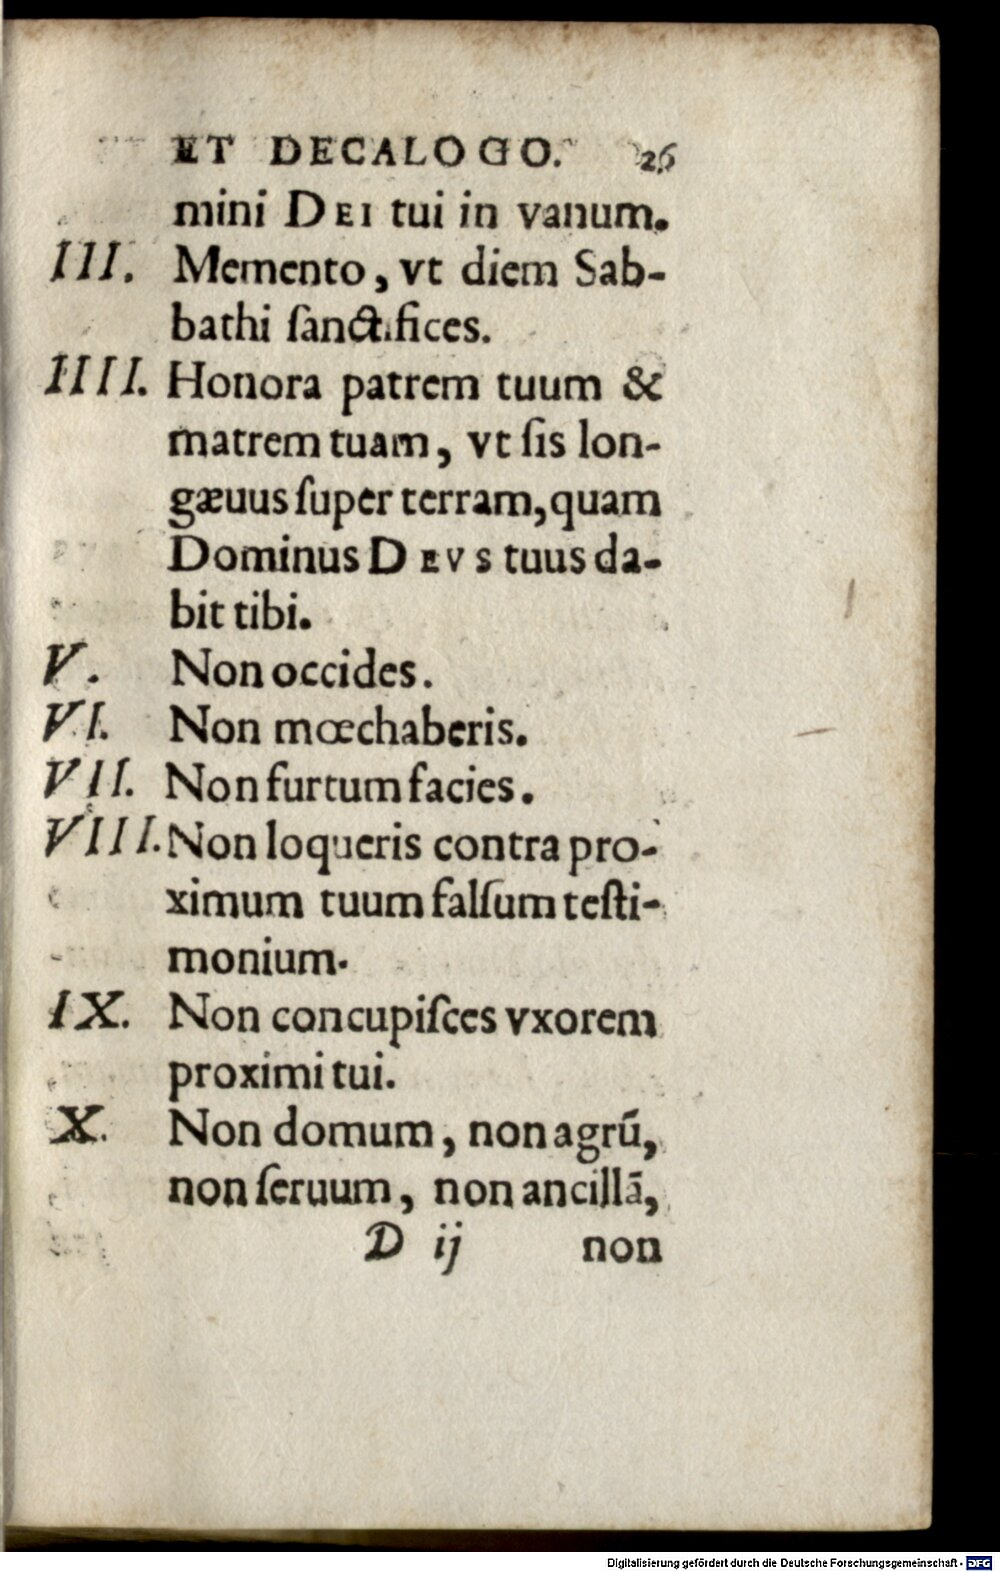 ET DECALOGO. 26
mini DEI tui in vanum.
III. Memento, vt diem Sab-
bathi ſanctifices.
IIII. Honora patrem tuum &
matrem tuam, vt ſis lon-
gæuus ſuper terram, quam
Dominus DEVS tuus da-
bit tibi.
V. Non occides.
VI. Non mœchaberis.
VII. Non furtum facies.
VIII. Non loqueris contra pro-
ximum tuum falſum teſti-
monium.
IX. Non concupiſces vxorem
proximi tui.
X. Non domum, non agrū,
non ſeruum, non ancillā,
D ij non
Digitalisierung gefördert durch die Deutsche Forschungsgemeinschaft - DFG